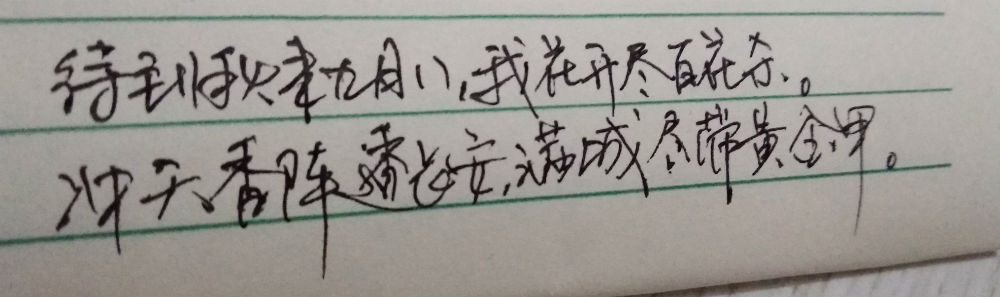 待到秋来九月八,我花开尽百花杀。
冲天香阵透长安,满城尽带黄金甲。